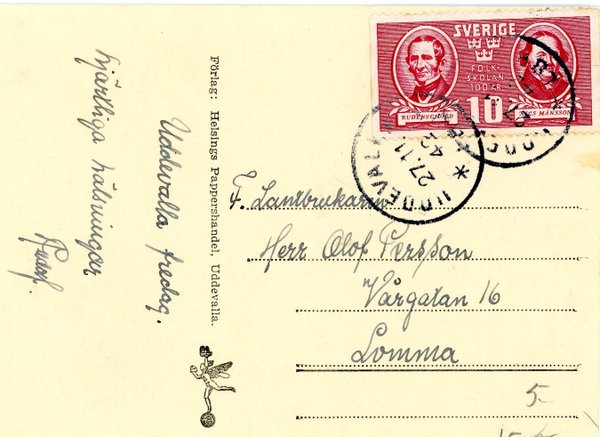 Uddevalla fredag.
hjärtliga hälsningar
Förlag: Helsings Pappershandel, Uddevalla.
SVERIGE
FOLK-
SKOLAN
100 ÅR
RUDENSCHÖLD
10
NILS MÅNSSON
UDDEVALLA
27.11
42
F. Lantbrukaren
Herr Olof Persson
Vårgatan 16
Lomma
5-